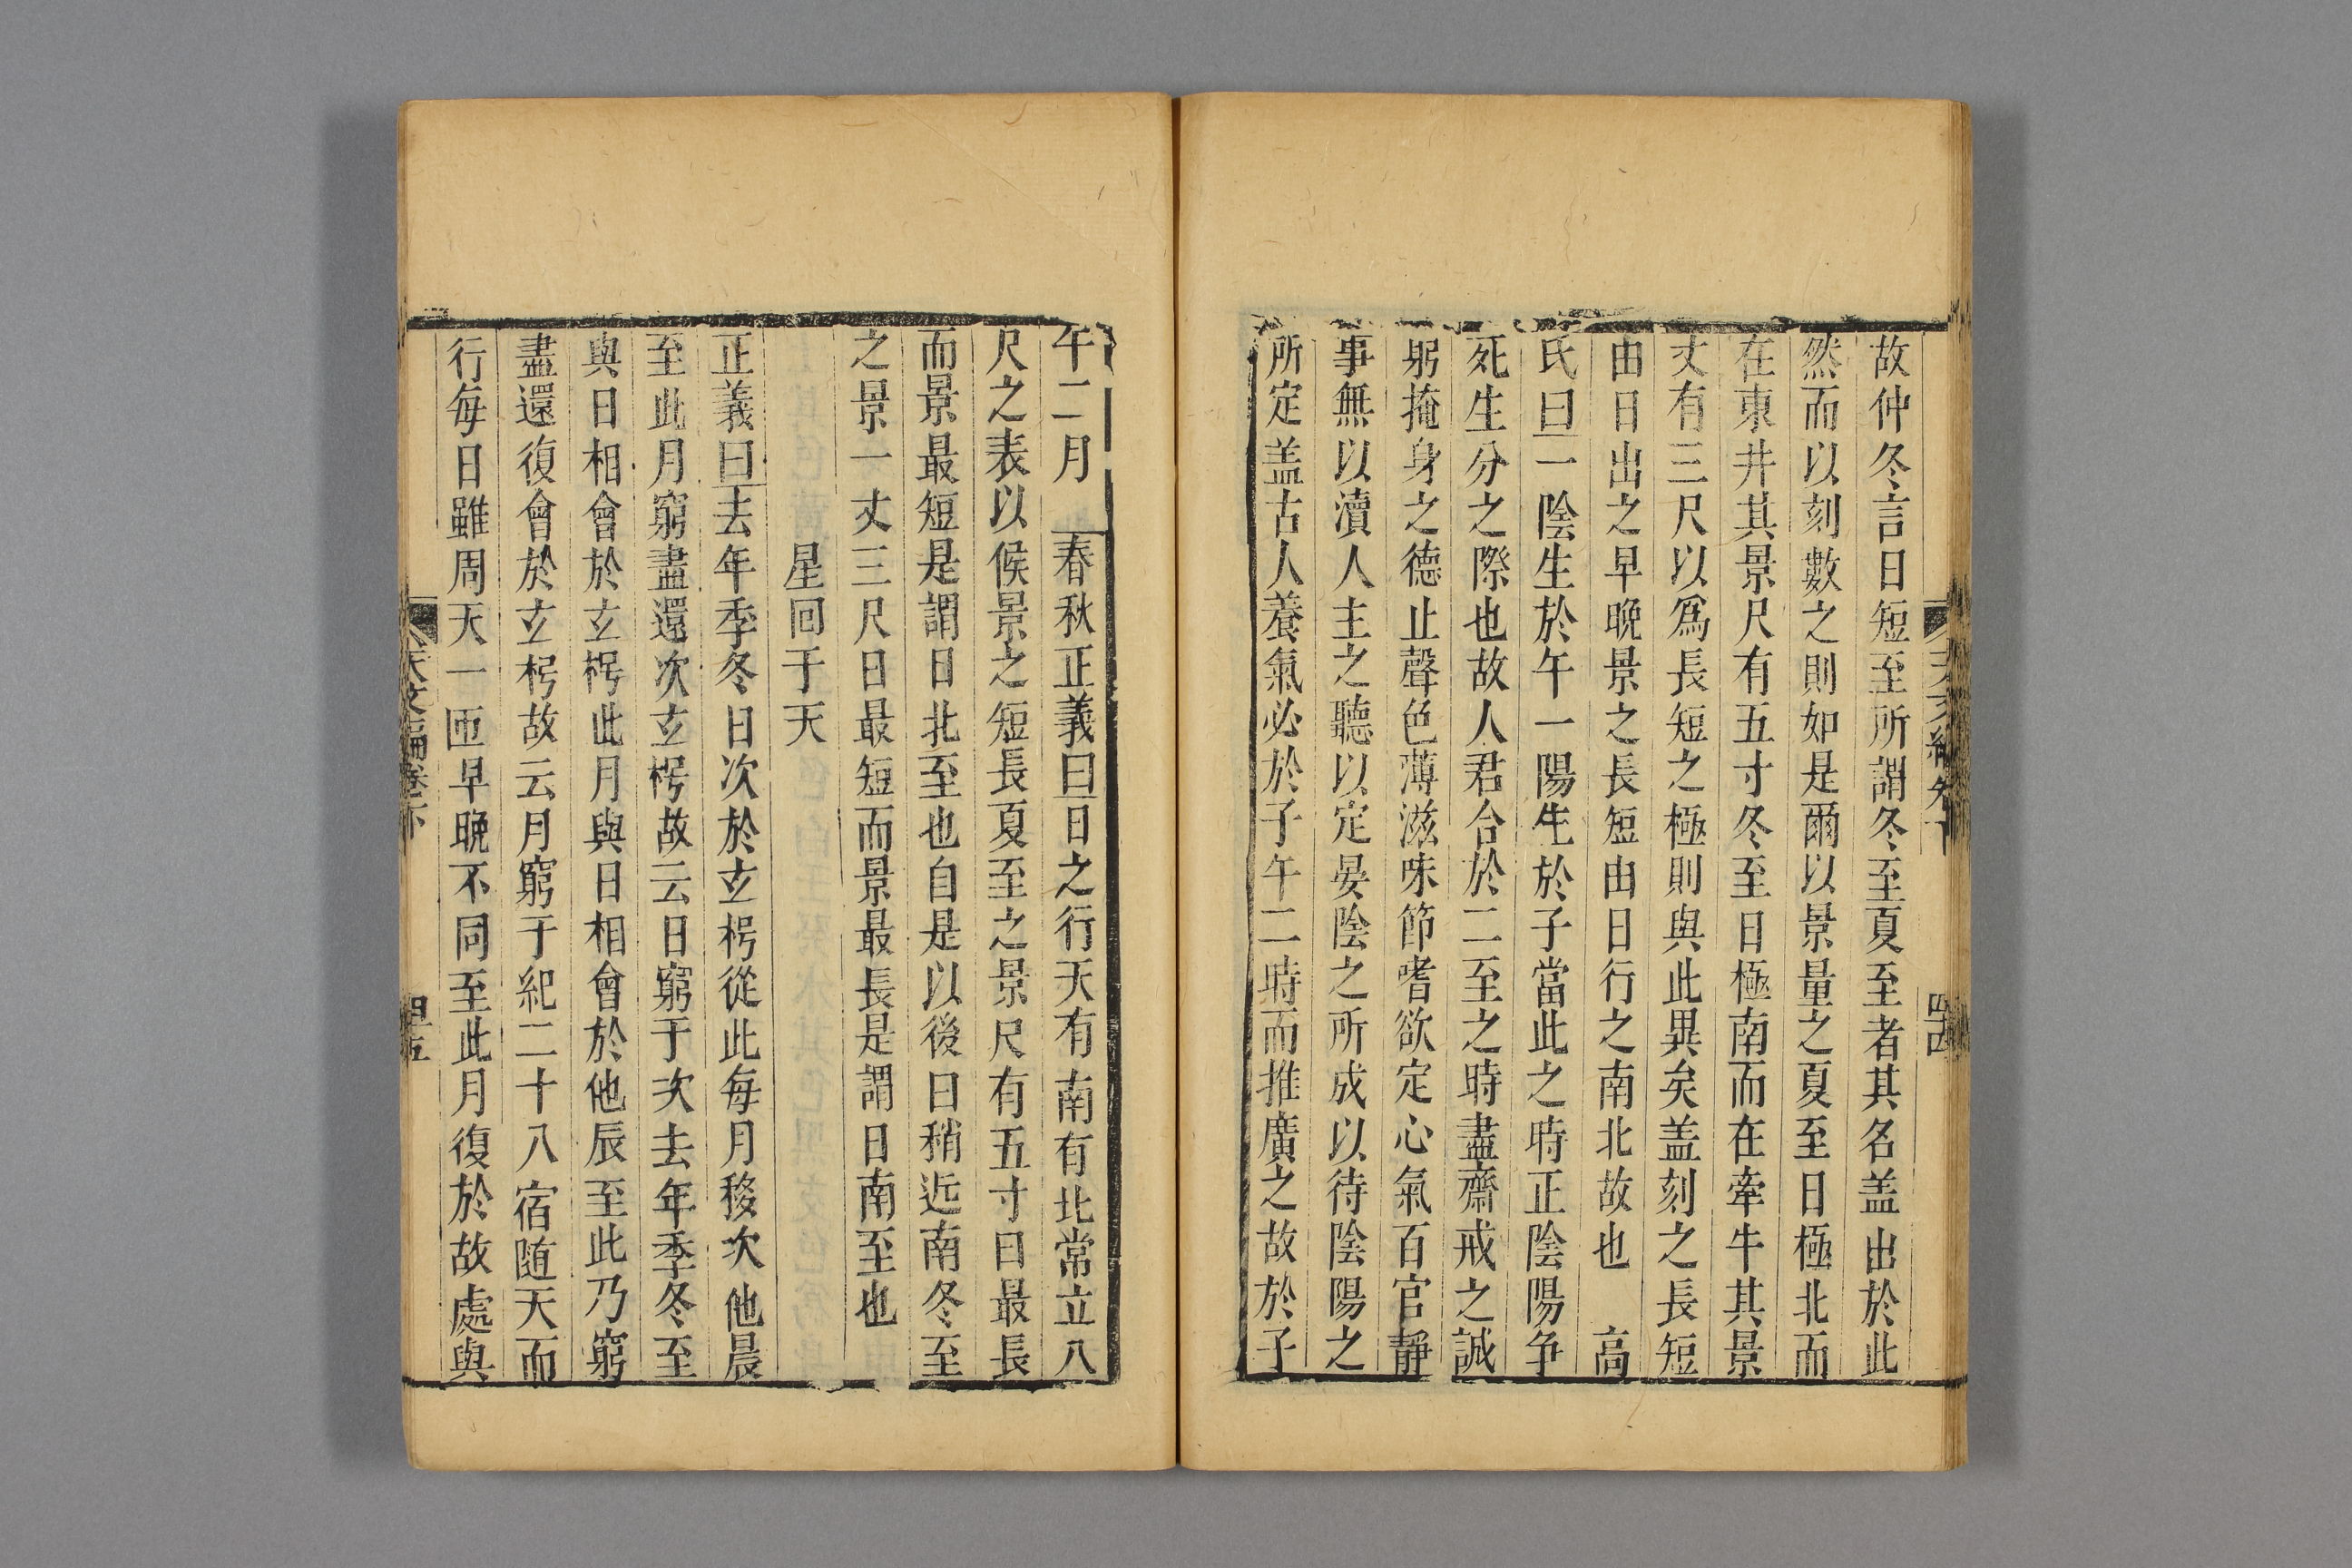 故仲冬言日短至所謂冬至夏至者其名盖出於此
然而以刻數之則如是爾以景量之夏至日極北而
在東井其景尺有五寸冬至日極南而在牽牛其景
丈有三尺以爲長短之極則與此異矣盖刻之長短
由日出之早晚景之長短由日行之南北故也　高
氏曰一陰生於午一陽生於子當此之時正陰陽争
死生分之際也故人君合於二至之時盡齋戒之誠
躬掩身之德止聲色薄滋味節嗜欲定心氣百官靜
事無以瀆人主之聽以定晏陰之所成以待陰陽之
所定盖古人養氣必於子午二時而推廣之故於子
午二月　春秋正義曰日之行天有南有北常立八
尺之表以候景之短長夏至之景尺有五寸日最長
而景最短是謂日北至也自是以後日稍近南冬至
之景一丈三尺日最短而景最長是謂日南至也
星回于天
正義曰去年季冬日次於玄枵從此每月移次他晨
至此月窮盡還次玄枵故云日窮于次去年季冬至
與日相會於玄枵此月與日相會於他辰至此乃窮
盡還復會於玄枵故云月窮于紀二十八宿随天而
行每日雖周天一匝早晚不同至此月復於故處與
天文編卷下
四五